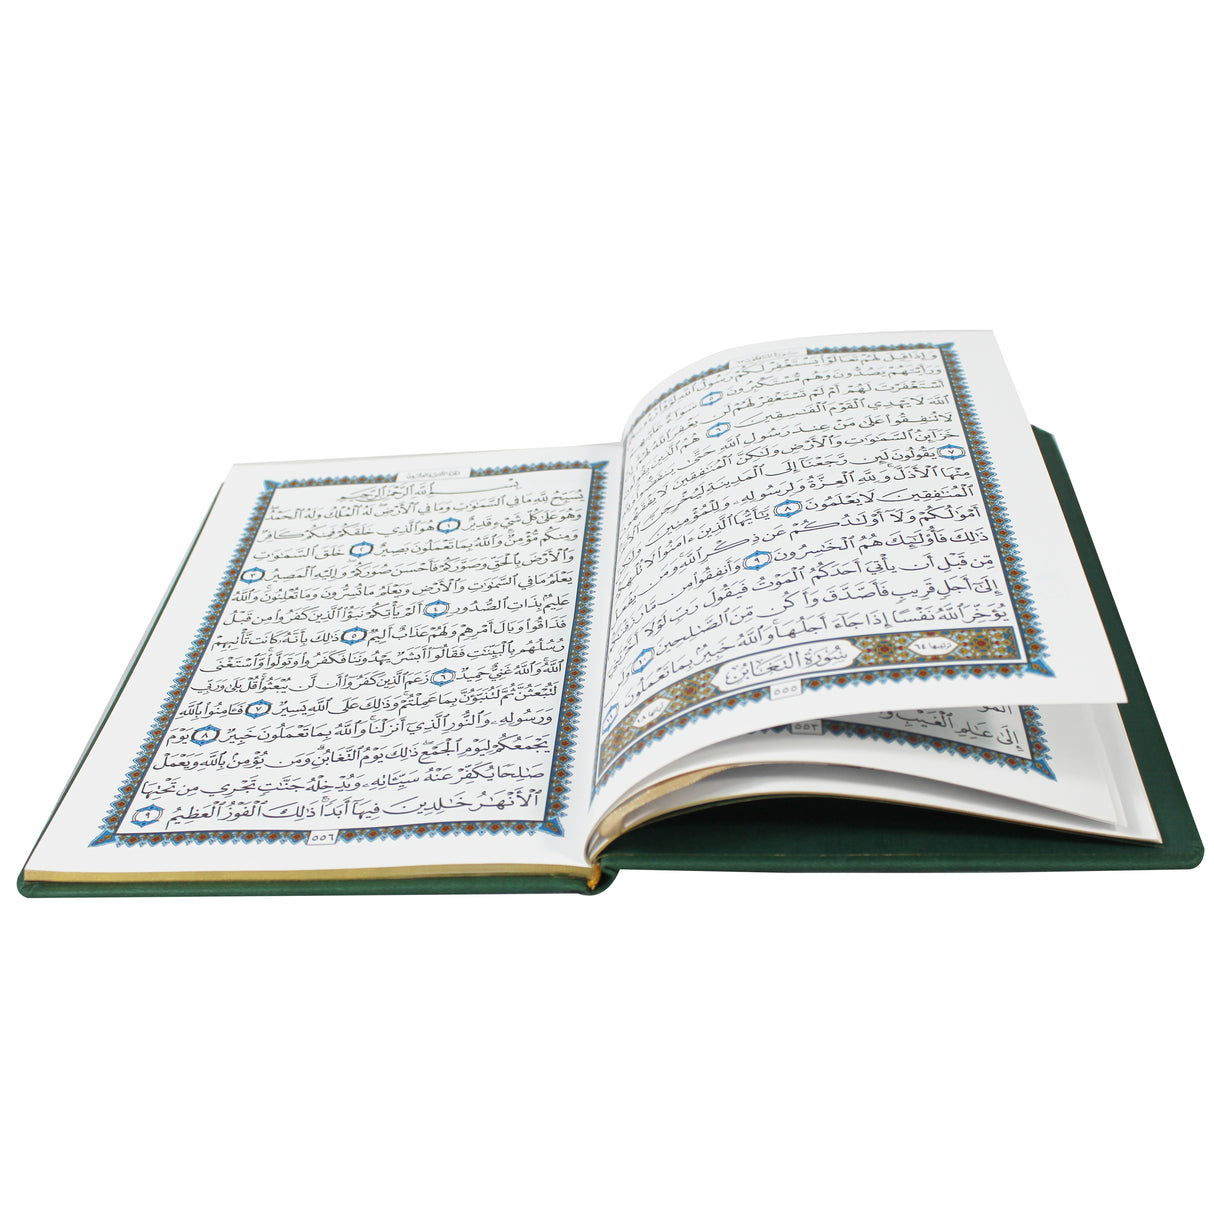 وَإِذَا قِيلَ لَهُمْ تَعَالَوْا۟ يَسْتَغْفِرْ لَكُمْ رَسُولُ ٱللَّهِ لَوَّوْا۟
وَرَأَيْتَهُمْ يَصُدُّونَ وَهُم مُّسْتَكْبِرُونَ ٥ سَوَآءٌ
أَسْتَغْفَرْتَ لَهُمْ أَمْ لَمْ تَسْتَغْفِرْ لَهُمْ لَن يَغْفِرَ ٱللَّهُ لَهُمْ
ٱللَّهَ لَا يَهْدِى ٱلْقَوْمَ ٱلْفَٰسِقِينَ ٦ هُمُ ٱلَّذِينَ
لَا تُنفِقُوا۟ عَلَىٰ مَنْ عِندَ رَسُولِ ٱللَّهِ حَتَّىٰ يَنفَضُّوا۟
خَزَآئِنُ ٱلسَّمَٰوَٰتِ وَٱلْأَرْضِ وَلَٰكِنَّ ٱلْمُنَٰفِقِينَ لَا
٧ يَقُولُونَ لَئِن رَّجَعْنَآ إِلَى ٱلْمَدِينَةِ لَيُخْرِجَنَّ
مِنْهَا ٱلْأَذَلَّ وَلِلَّهِ ٱلْعِزَّةُ وَلِرَسُولِهِۦ وَلِلْمُؤْمِنِينَ
ٱلْمُنَٰفِقِينَ لَا يَعْلَمُونَ ٨ يَٰٓأَيُّهَا ٱلَّذِينَ ءَامَنُوا۟ لَا تُلْهِكُمْ
أَمْوَٰلُكُمْ وَلَآ أَوْلَٰدُكُمْ عَن ذِكْرِ ٱللَّهِ وَمَن يَفْعَلْ
ذَٰلِكَ فَأُو۟لَٰٓئِكَ هُمُ ٱلْخَٰسِرُونَ ٩ وَأَنفِقُوا۟ مِن مَّا رَزَقْنَٰكُم
مِّن قَبْلِ أَن يَأْتِىَ أَحَدَكُمُ ٱلْمَوْتُ فَيَقُولَ رَبِّ لَوْلَآ أَخَّرْتَنِىٓ
إِلَىٰٓ أَجَلٍ قَرِيبٍ فَأَصَّدَّقَ وَأَكُن مِّنَ ٱلصَّٰلِحِينَ ١٠ وَلَن
يُؤَخِّرَ ٱللَّهُ نَفْسًا إِذَا جَآءَ أَجَلُهَا وَٱللَّهُ خَبِيرٌۢ بِمَا تَعْمَلُونَ ١١
ترتيبها ٦٤ سُورَةُ ٱلتَّغَابُنِ آياتها ١٨
٥٥٥
إِلَىٰ عَٰلِمِ ٱلْغَيْبِ
٥٥٣
بِسْمِ ٱللَّهِ ٱلرَّحْمَٰنِ ٱلرَّحِيمِ
يُسَبِّحُ لِلَّهِ مَا فِى ٱلسَّمَٰوَٰتِ وَمَا فِى ٱلْأَرْضِ لَهُ ٱلْمُلْكُ وَلَهُ ٱلْحَمْدُ
وَهُوَ عَلَىٰ كُلِّ شَىْءٍ قَدِيرٌ ١ هُوَ ٱلَّذِى خَلَقَكُمْ فَمِنكُمْ كَافِرٌ
وَمِنكُم مُّؤْمِنٌ وَٱللَّهُ بِمَا تَعْمَلُونَ بَصِيرٌ ٢ خَلَقَ ٱلسَّمَٰوَٰتِ
وَٱلْأَرْضَ بِٱلْحَقِّ وَصَوَّرَكُمْ فَأَحْسَنَ صُوَرَكُمْ وَإِلَيْهِ ٱلْمَصِيرُ ٣
يَعْلَمُ مَا فِى ٱلسَّمَٰوَٰتِ وَٱلْأَرْضِ وَيَعْلَمُ مَا تُسِرُّونَ وَمَا تُعْلِنُونَ وَٱللَّهُ
عَلِيمٌۢ بِذَاتِ ٱلصُّدُورِ ٤ أَلَمْ يَأْتِكُمْ نَبَؤُا۟ ٱلَّذِينَ كَفَرُوا۟ مِن قَبْلُ
فَذَاقُوا۟ وَبَالَ أَمْرِهِمْ وَلَهُمْ عَذَابٌ أَلِيمٌ ٥ ذَٰلِكَ بِأَنَّهُۥ كَانَت تَّأْتِيهِمْ
رُسُلُهُم بِٱلْبَيِّنَٰتِ فَقَالُوٓا۟ أَبَشَرٌ يَهْدُونَنَا فَكَفَرُوا۟ وَتَوَلَّوا۟ وَّٱسْتَغْنَى
ٱللَّهُ وَٱللَّهُ غَنِىٌّ حَمِيدٌ ٦ زَعَمَ ٱلَّذِينَ كَفَرُوٓا۟ أَن لَّن يُبْعَثُوا۟ قُلْ بَلَىٰ وَرَبِّى
لَتُبْعَثُنَّ ثُمَّ لَتُنَبَّؤُنَّ بِمَا عَمِلْتُمْ وَذَٰلِكَ عَلَى ٱللَّهِ يَسِيرٌ ٧ فَـَٔامِنُوا۟ بِٱللَّهِ
وَرَسُولِهِۦ وَٱلنُّورِ ٱلَّذِىٓ أَنزَلْنَا وَٱللَّهُ بِمَا تَعْمَلُونَ خَبِيرٌ ٨ يَوْمَ
يَجْمَعُكُمْ لِيَوْمِ ٱلْجَمْعِ ذَٰلِكَ يَوْمُ ٱلتَّغَابُنِ وَمَن يُؤْمِنۢ بِٱللَّهِ وَيَعْمَلْ
صَٰلِحًا يُكَفِّرْ عَنْهُ سَيِّـَٔاتِهِۦ وَيُدْخِلْهُ جَنَّٰتٍ تَجْرِى مِن تَحْتِهَا
ٱلْأَنْهَٰرُ خَٰلِدِينَ فِيهَآ أَبَدًا ذَٰلِكَ ٱلْفَوْزُ ٱلْعَظِيمُ ٩
٥٥٦